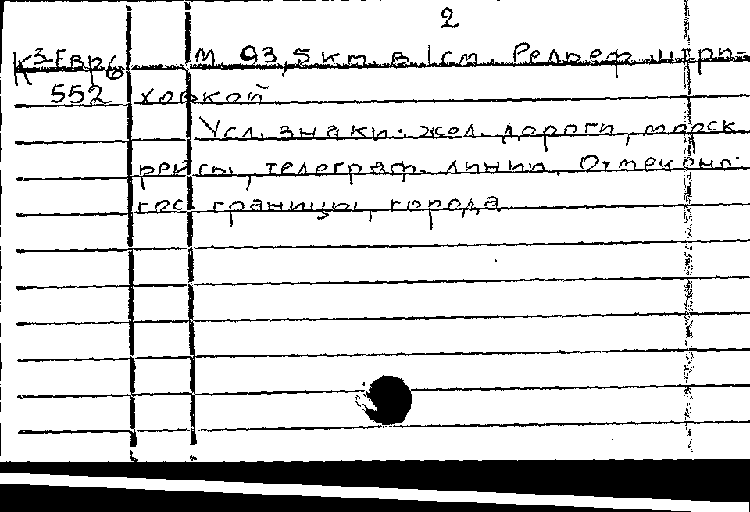 2
К³-Евр6 М 93,5 км. в 1см. Рельеф штри-
552 ховкой.
Усл. знаки: жел. дороги, морск.
рейсы, телеграф. линии. Отмечено:
гос. границы, города